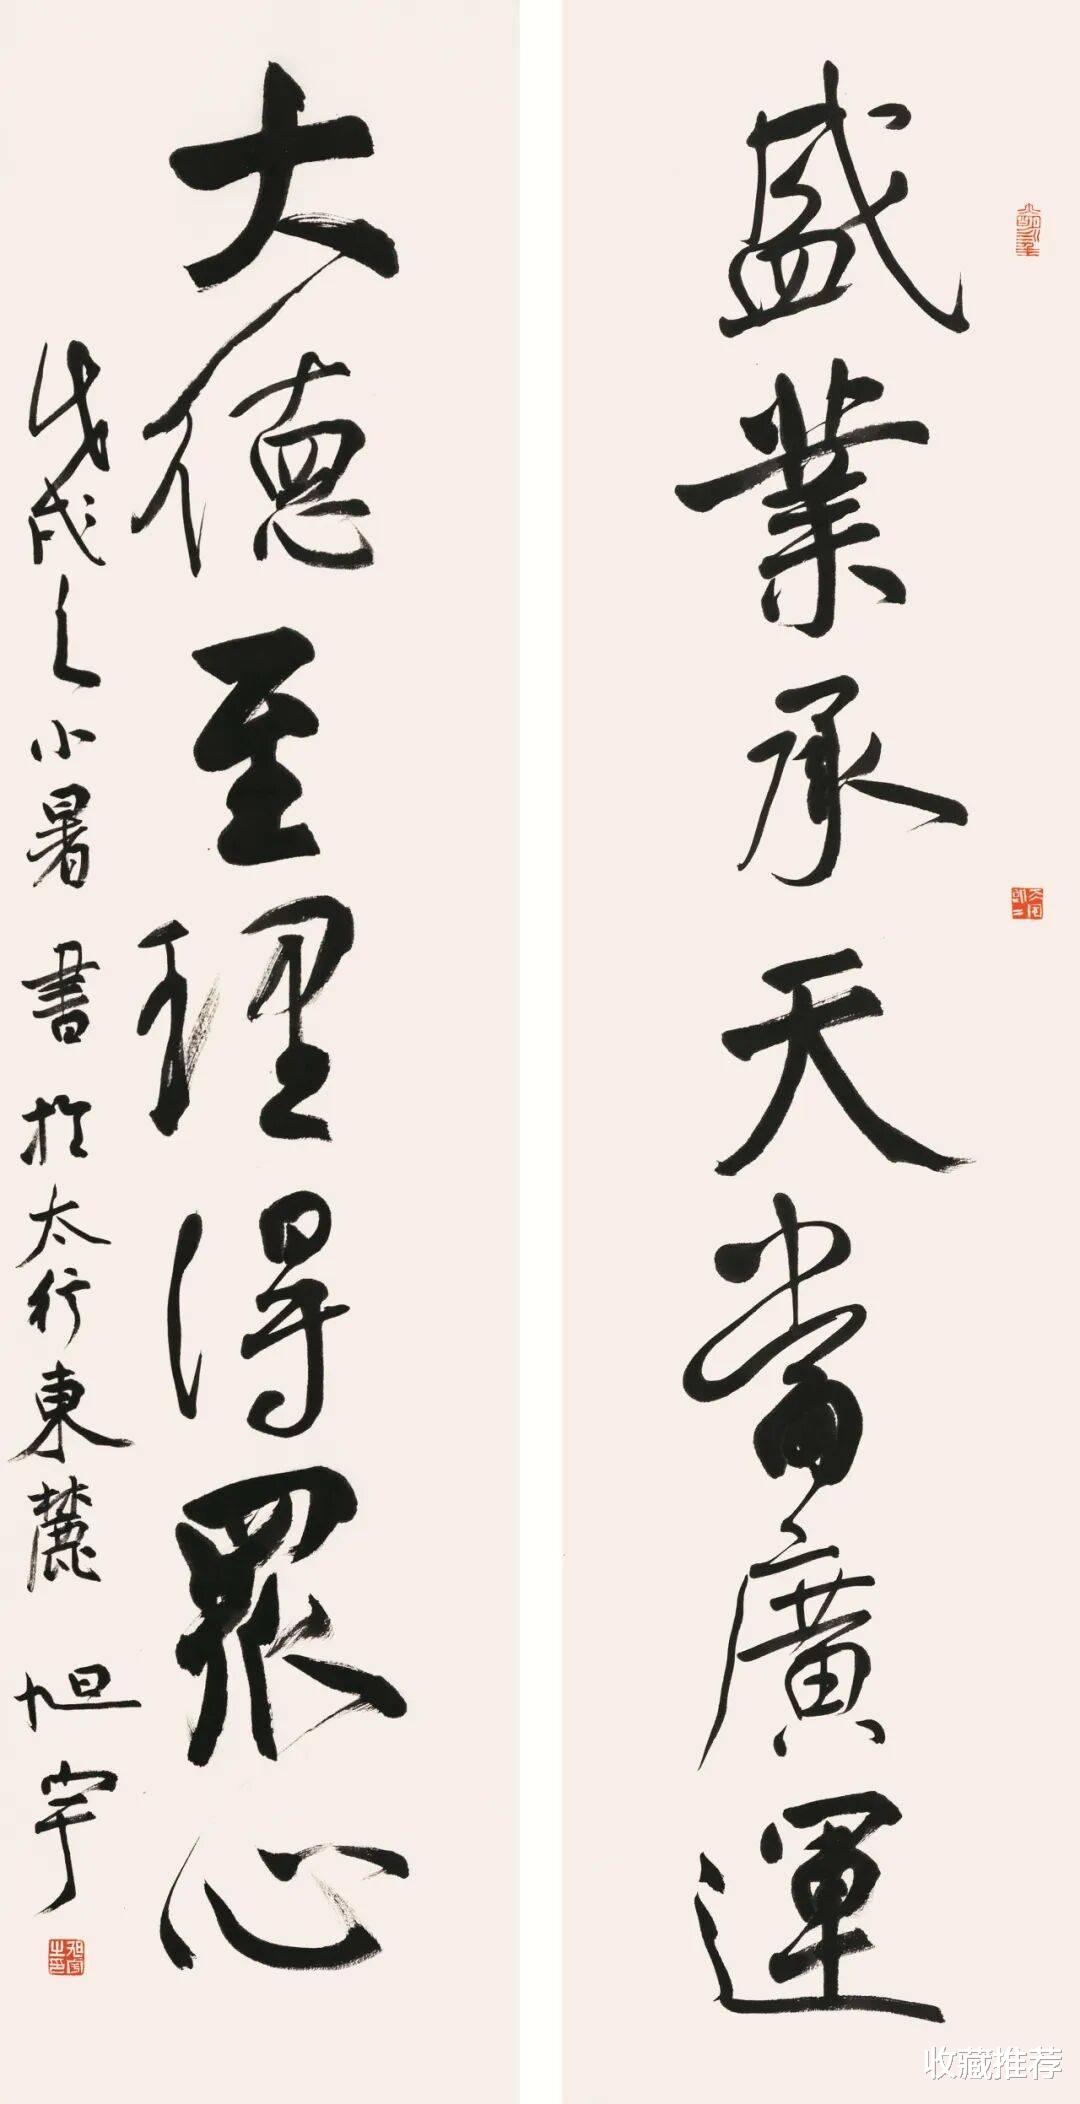 盛業承天當廣運
大德至理得眾心
戊戌之小暑 書於太行東麓 旭宇
旭宇之印
收藏推荐